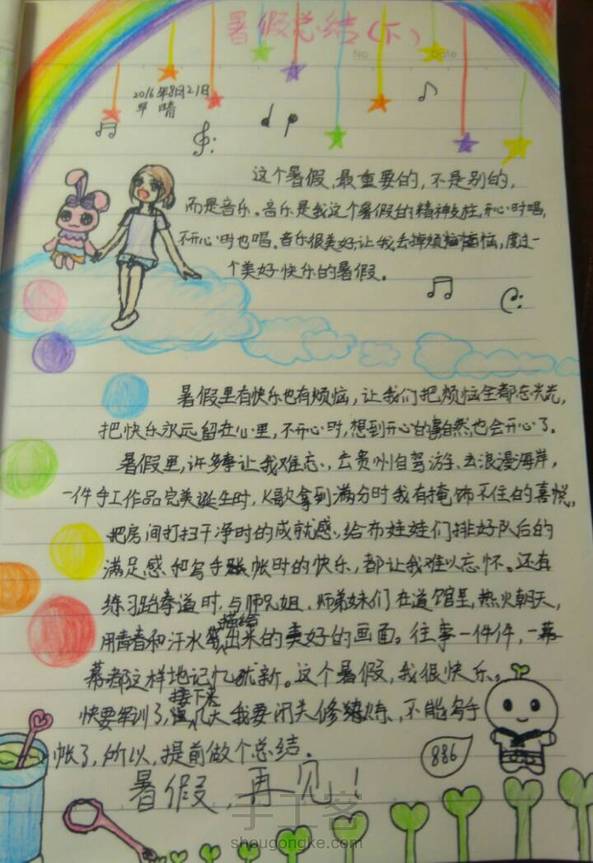 暑假总结(下)
No.
Date
2016年8月21日
晴
这个暑假,最重要的,不是别的,
而是音乐。音乐是我这个暑假的精神支柱,开心时唱,
不开心时也唱。音乐很美好让我去掉烦恼,度过一
个美好快乐的暑假。
暑假里有快乐也有烦恼,让我们把烦恼全都忘光光,
把快乐永远留在心里,不开心时,想到开心的自然也会开心了。
暑假里,许多事让我难忘、去贵州自驾游、去浪漫海岸,
一件手工作品完美诞生时,K歌拿到满分时我有掩饰不住的喜悦,
把房间打扫干净时的成就感、给布娃娃们排好队后的
满足感和写手账帐时的快乐,都让我难以忘怀。还有
练习跆拳道时,与师兄姐、师弟妹们在道馆里,热火朝天,
用青春和汗水描绘出来的美好的画面。往事一件件,一幕
幕都这样地记忆犹新。这个暑假,我很快乐。
快要军训了,接下来几天我要闭关修炼、不能写手
帐了,所以,提前做个总结。
886
暑假,再见!
手工客
shougongke.com